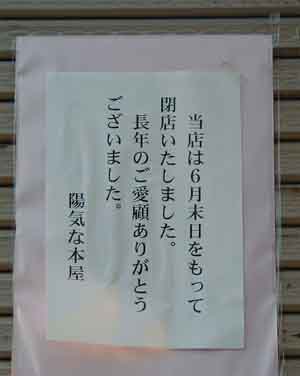 当店は６月末日をもって
閉店いたしました。
長年のご愛顧ありがとう
ございました。
陽気な本屋